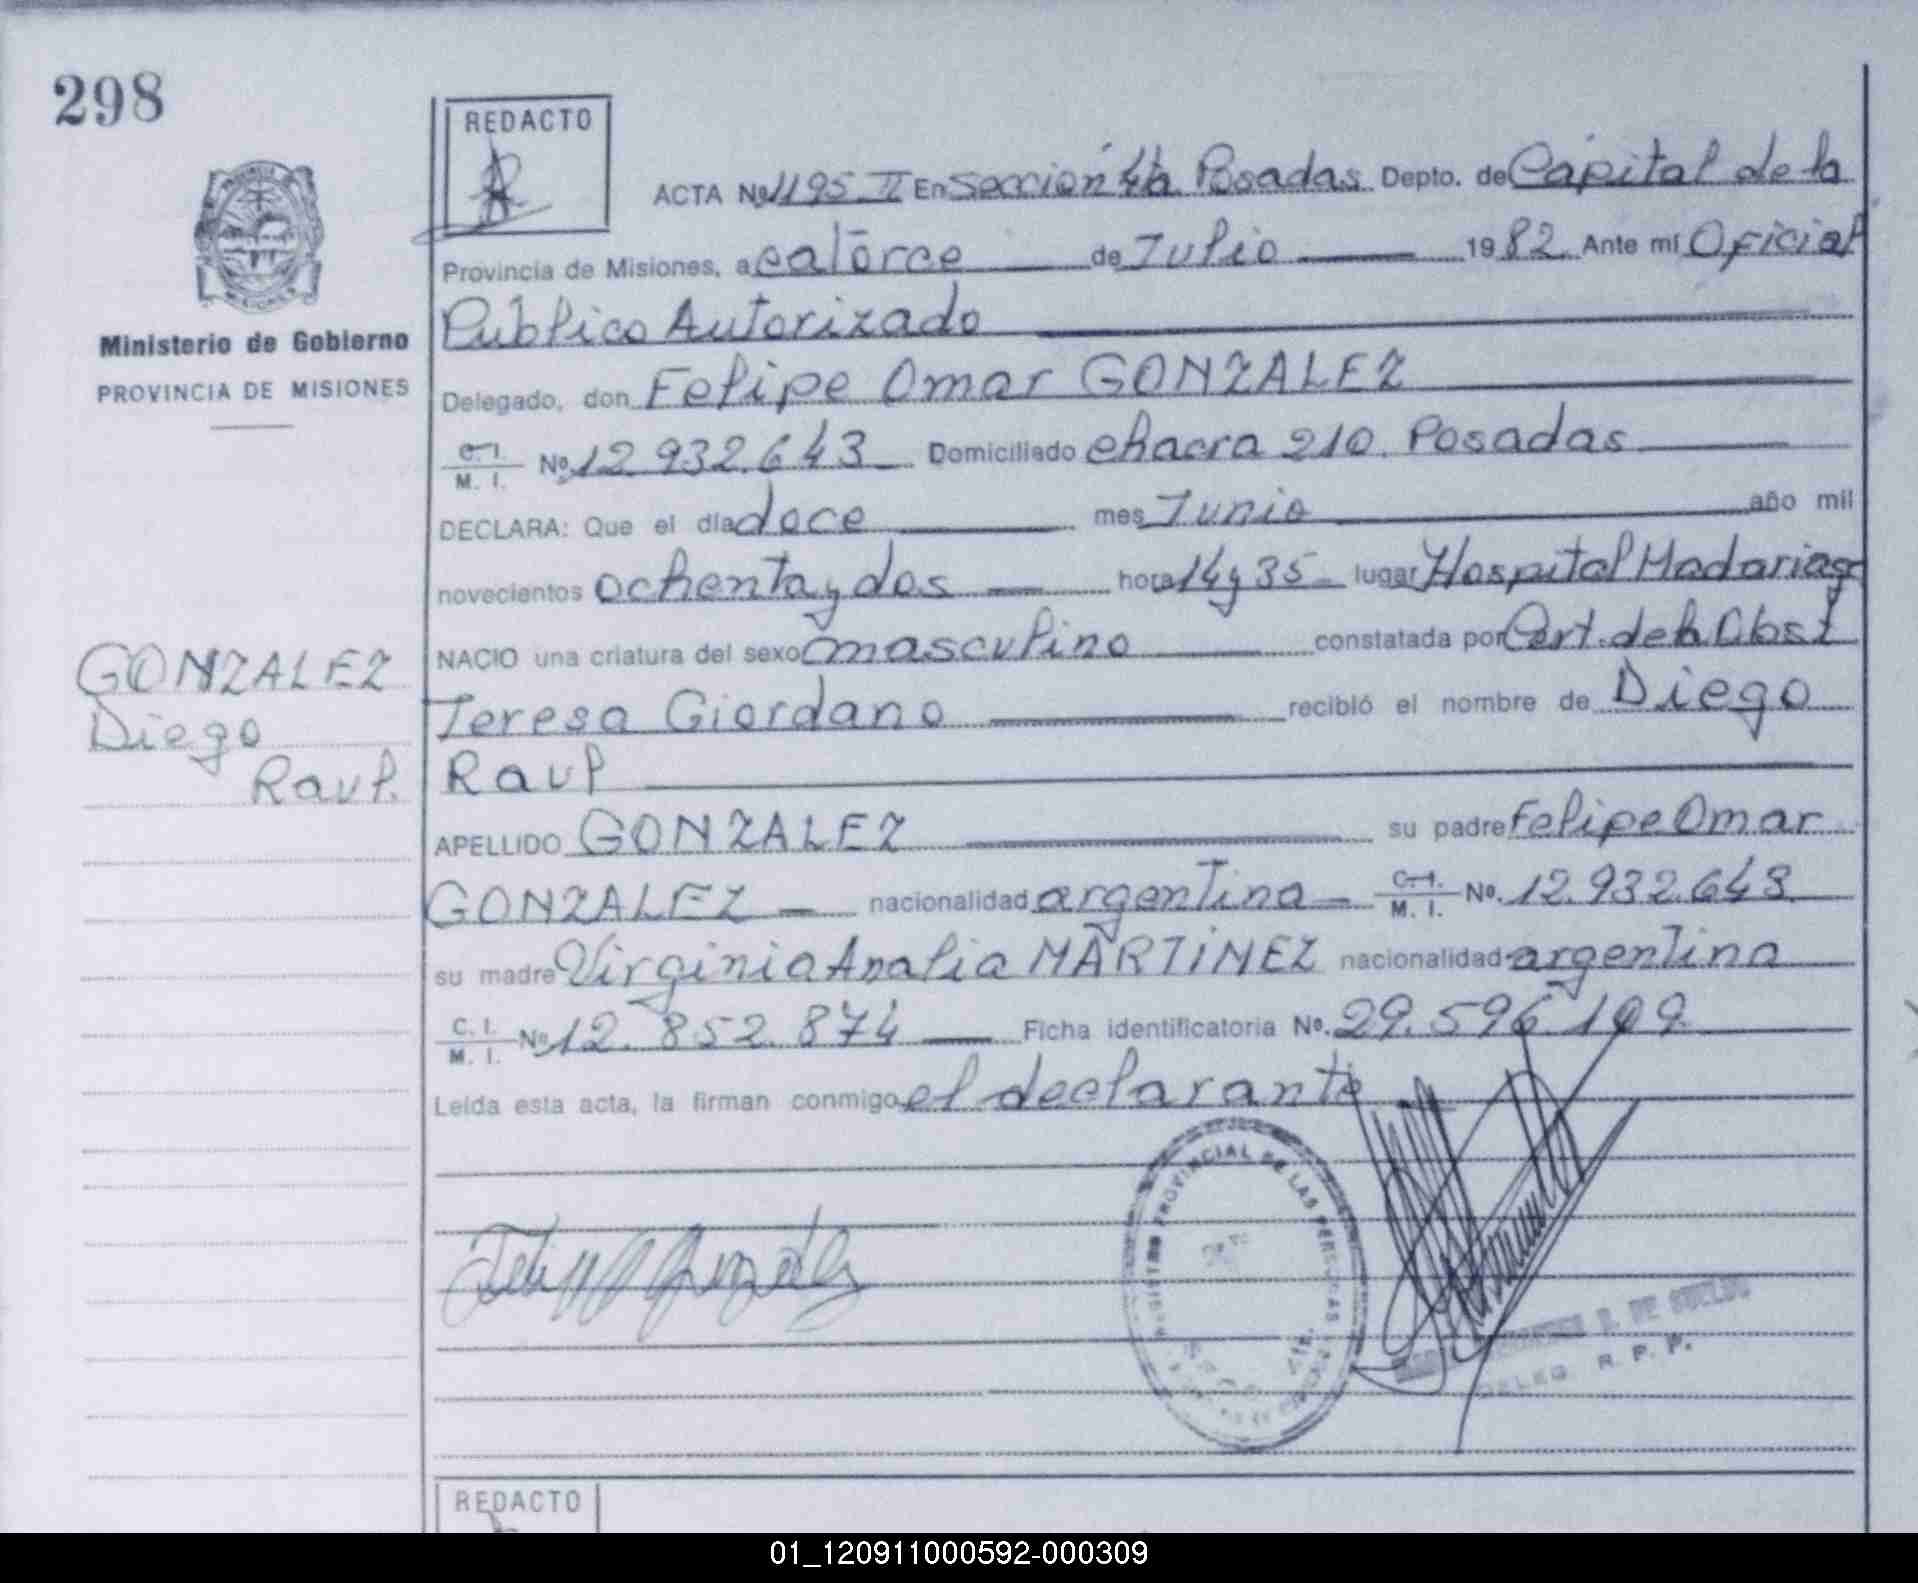 298
REDACTO
ACTA Nº 1195 II En Sección 4ta Posadas Depto. de Capital de la
Provincia de Misiones, a catorce de Julio 1982 Ante mí Oficial
Ministerio de Gobierno
PROVINCIA DE MISIONES
Público Autorizado
Delegado, don Felipe Omar GONZALEZ
C. I.
M. I. Nº 12.932.643 Domiciliado chacra 210. Posadas
DECLARA: Que el día doce mes Junio año mil
novecientos ochenta y dos hora 14 y 35 lugar Hospital Madariaga
NACIO una criatura del sexo masculino constatada por Cert. de la Obst
GONZALEZ
Diego
Raul.
Teresa Giordano recibió el nombre de Diego
Raul
APELLIDO GONZALEZ su padre Felipe Omar
GONZALEZ nacionalidad argentina C. I.
M. I. Nº. 12.932.643
su madre Virginia Analia MARTINEZ nacionalidad argentina
C. I.
M. I. Nº 12.852.874 Ficha identificatoria Nº. 29.596.109
Leída esta acta, la firman conmigo el declarante
PROVINCIAL DE LAS PERSONAS
DE SUELDO
DELEG. R. P. P.
REDACTO
01_120911000592-000309